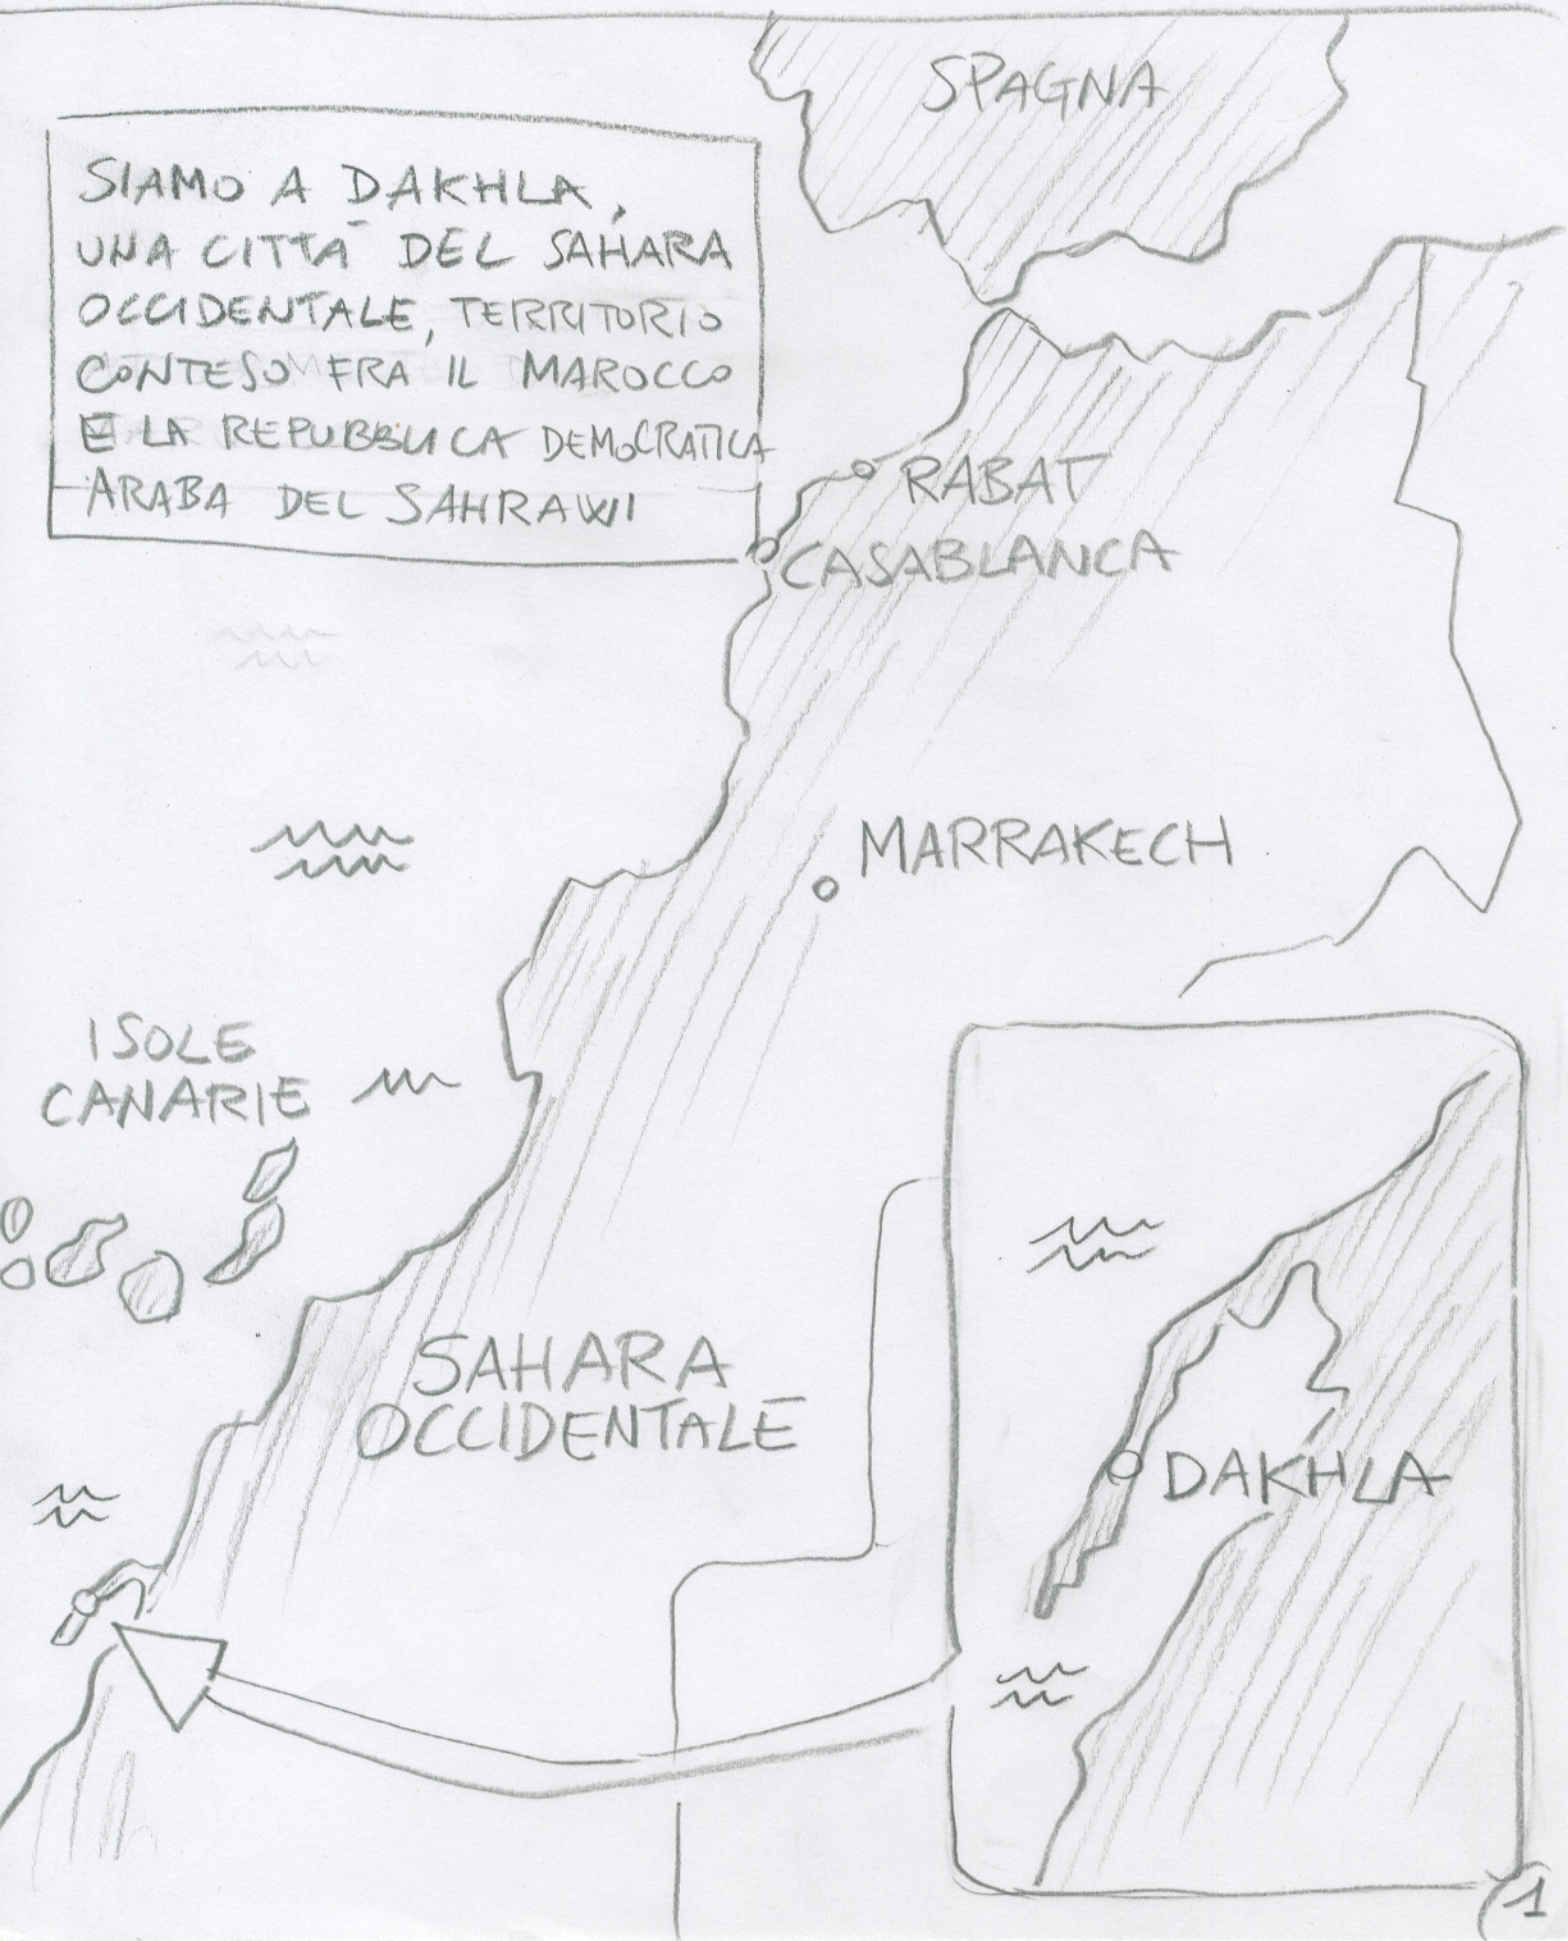 SPAGNA
SIAMO A DAKHLA,
UNA CITTÀ DEL SAHARA
OCCIDENTALE, TERRITORIO
CONTESO FRA IL MAROCCO
E LA REPUBBLICA DEMOCRATICA
ARABA DEL SAHRAWI
RABAT
CASABLANCA
MARRAKECH
ISOLE
CANARIE
SAHARA
OCCIDENTALE
DAKHLA
1